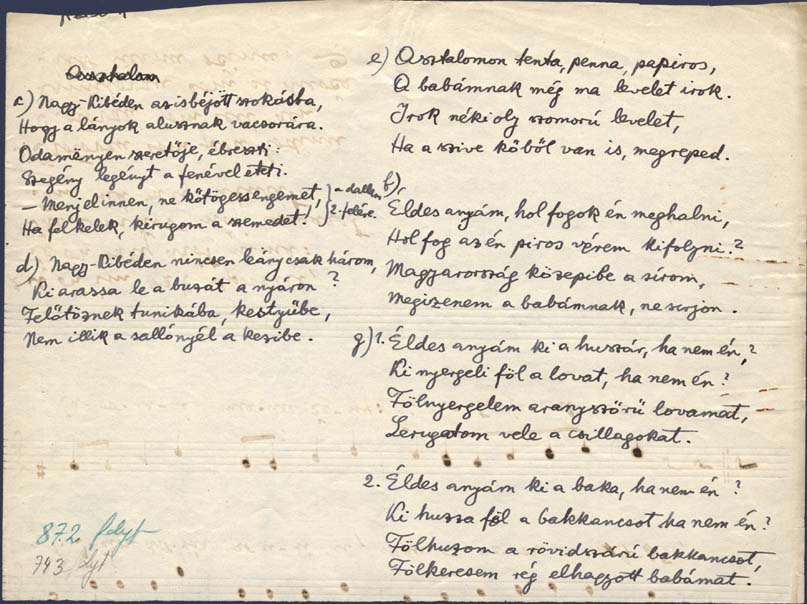 Asztalom
c) Nagy-Kibéden az is béjött szokásba,
Hogy a lányok alusznak vacsorára.
Odamenyen szeretője, ébreszti:
Szegény legényt a fenével eteti.
– Menj el innen, ne kötögess engemet,
Ha felkelek, kirugom a szemedet.
} a dallam
2. felére.
d) Nagy-Kibéden nincsen leány csak három,
Ki arassa le a buzát a nyáron?
Felőtöznek tunikába, kestyübe,
Nem illik a sallónyél a kezibe.
872 folyt
793 folyt
e) Asztalomon tenta, penna, papiros,
A babámnak még ma levelet irok.
Irok néki oly szomorú levelet,
Ha a szive kőből van is, megreped.
f)
Éldes anyám, hol fogok én meghalni,
Hol fog az én piros vérem kifolyni?
Magyarország közepibe a sírom,
Megizenem a babámnak, ne sirjon.
g) 1. Éldes anyám ki a huszár, ha nem én?
Ki nyergeli föl a lovat, ha nem én?
Fölnyergelem aranyszőrü lovamat,
Lerugatom vele a csillagokat.
2. Éldes anyám ki a baka, ha nem én?
Ki huzza föl a bakkancsot ha nem én?
Fölhuzom a rövidszárú bakkancsot,
Fölkeresem rég elhagyott babámat.